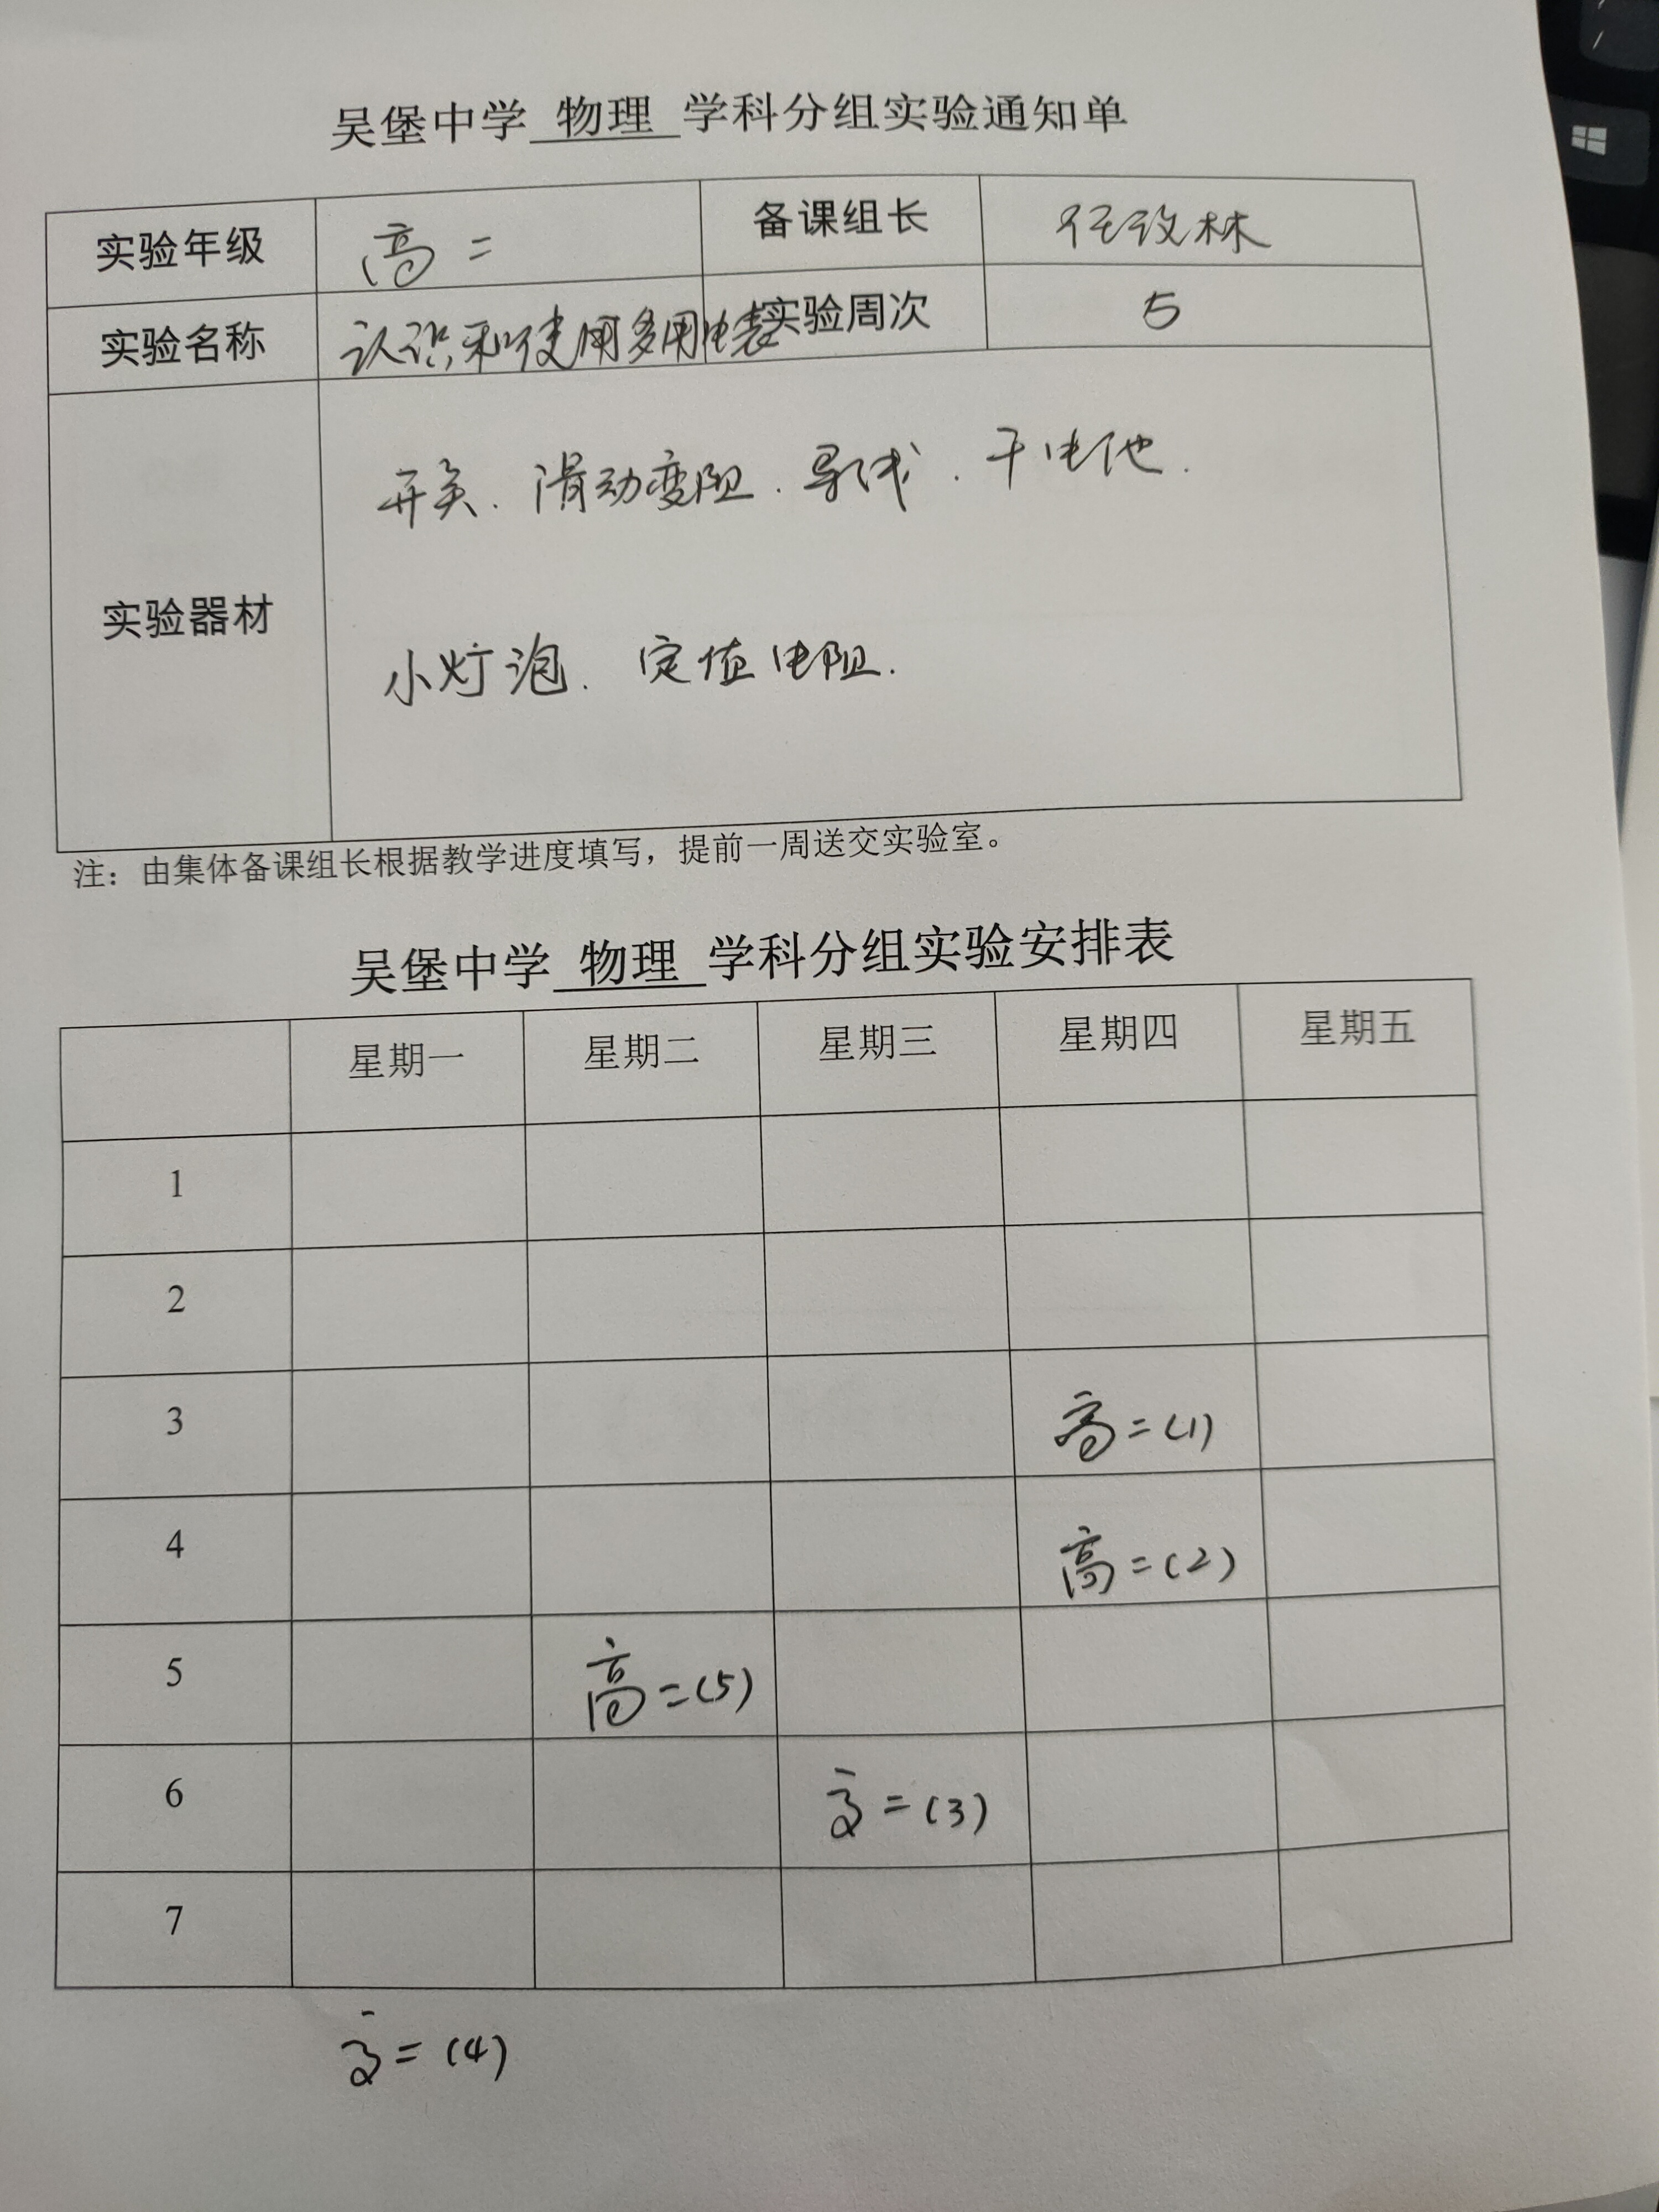 吴堡中学 物理 学科分组实验通知单
实验年级 高二 备课组长 任改林
实验名称 认识和使用多用电表 实验周次 5
实验器材
开关、滑动变阻、导线、干电池、
小灯泡、定值电阻.
注：由集体备课组长根据教学进度填写，提前一周送交实验室。
吴堡中学 物理 学科分组实验安排表
星期一 星期二 星期三 星期四 星期五
1
2
3 高二(1)
4 高二(2)
5 高二(5)
6 高二(3)
7
高二(4)